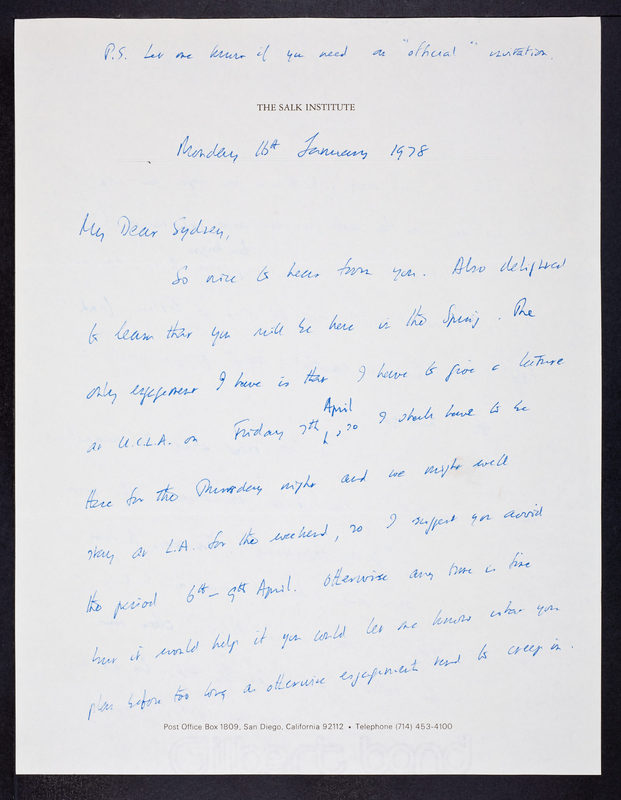 P.S. Let me know if you need an "official" invitation.
THE SALK INSTITUTE
Monday 16th January 1978
My Dear Sydney,
So nice to hear from you. Also delighted
to learn that you will be here in the Spring. The
only engagement I have is that I have to give a lecture
at U.C.L.A. on Friday 7th April, so I shall have to be
there for the Thursday night and we might well
stay at L.A. for the weekend, so I suggest you avoid
the period 6th - 9th April. Otherwise any time is fine
but it would help if you could let me know when you
plan before too long as otherwise engagements tend to creep in.
Post Office Box 1809, San Diego, California 92112 • Telephone (714) 453-4100